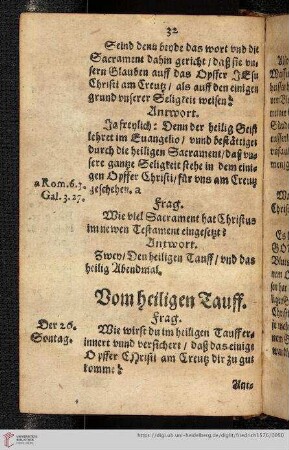 32
Seind denn beyde das wort vnd die
Sacrament dahin gericht / daß sie vn-
sern Glauben auff das Opffer JEsu
Christi am Creutz / als auff den einigen
grund vnserer Seligkeit weisen?
Antwort.
Ja freylich: Denn der heilig Geist
lehret im Euangelio / vnnd bestättiget
durch die heiligen Sacrament / daß vn-
sere gantze Seligkeit stehe in dem eini-
gen Opffer Christi / für vns am Creutz
geschehen. a
a Rom. 6.3.
Gal. 3.27.
Frag.
Wie viel Sacrament hat Christus
im newen Testament eingesetzt?
Antwort.
Zwey / Den heiligen Tauff / vnd das
heilig Abendmal.
Vom heiligen Tauff.
Frag.
Der 26.
Sontag.
Wie wirst du im heiligen Tauff er-
innert vnnd versichert / daß das einige
Opffer CHristi am Creutz dir zu gut
komme?
Ant-